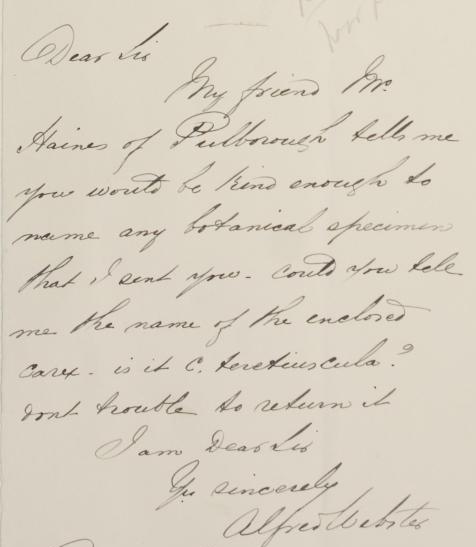 Dear Sir
My friend Mr.
Haines of Pulborough tells me
you would be kind enough to
name any botanical specimen
that I sent you - could you tell
me the name of the enclosed
carex - is it C. teretiuscula?
dont trouble to return it
I am Dear Sir
Yrs sincerely
Alfred Webster